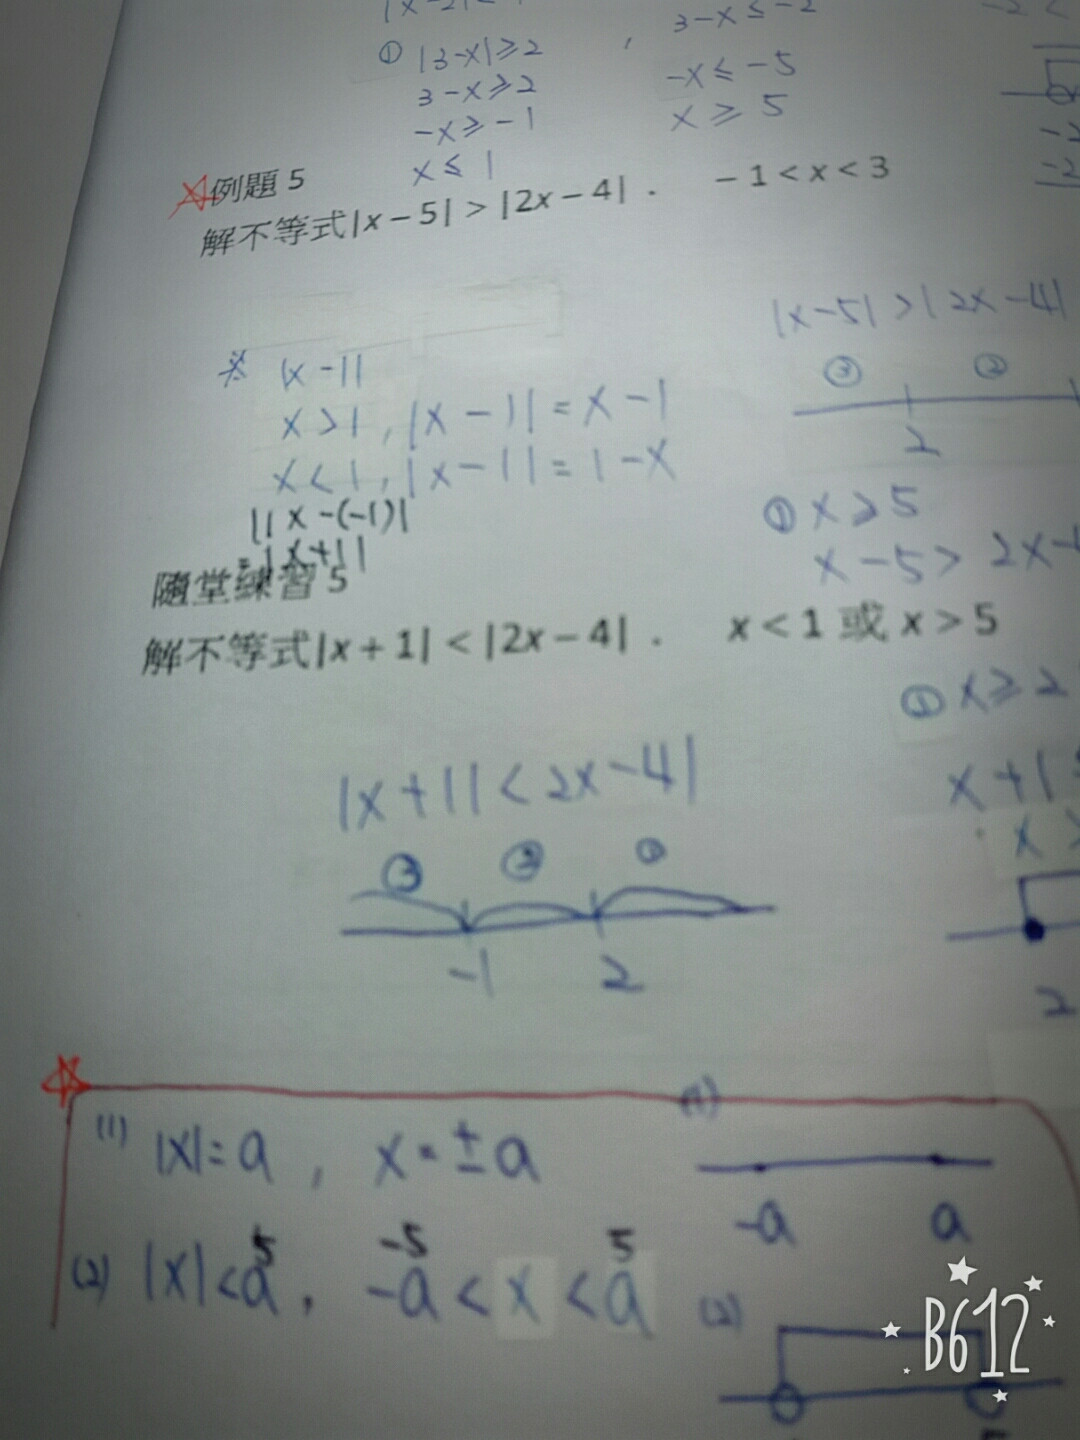 ① |3-x|≥2
3-x≥2
-x≥-1
x≤1
3-x≤-2
-x≤-5
x≥5
例題 5
解不等式|x-5|>|2x-4|. -1<x<3
※ |x-1|
x>1, |x-1|=x-1
x<1, |x-1|=1-x
x-(-1)|
=|x+1|
|x-5|>|2x-4|
③ ②
2
① x≥5
x-5>2x-4
隨堂練習 5
解不等式|x+1|<|2x-4|. x<1 或 x>5
|x+1|<2x-4|
③ ② ①
-1 2
① x≥2
x+1
x>
2
(1) |x|=a, x=±a
(1)
-a a
5 -5 5
(2) |x|<a, -a<x<a
(2)
B612